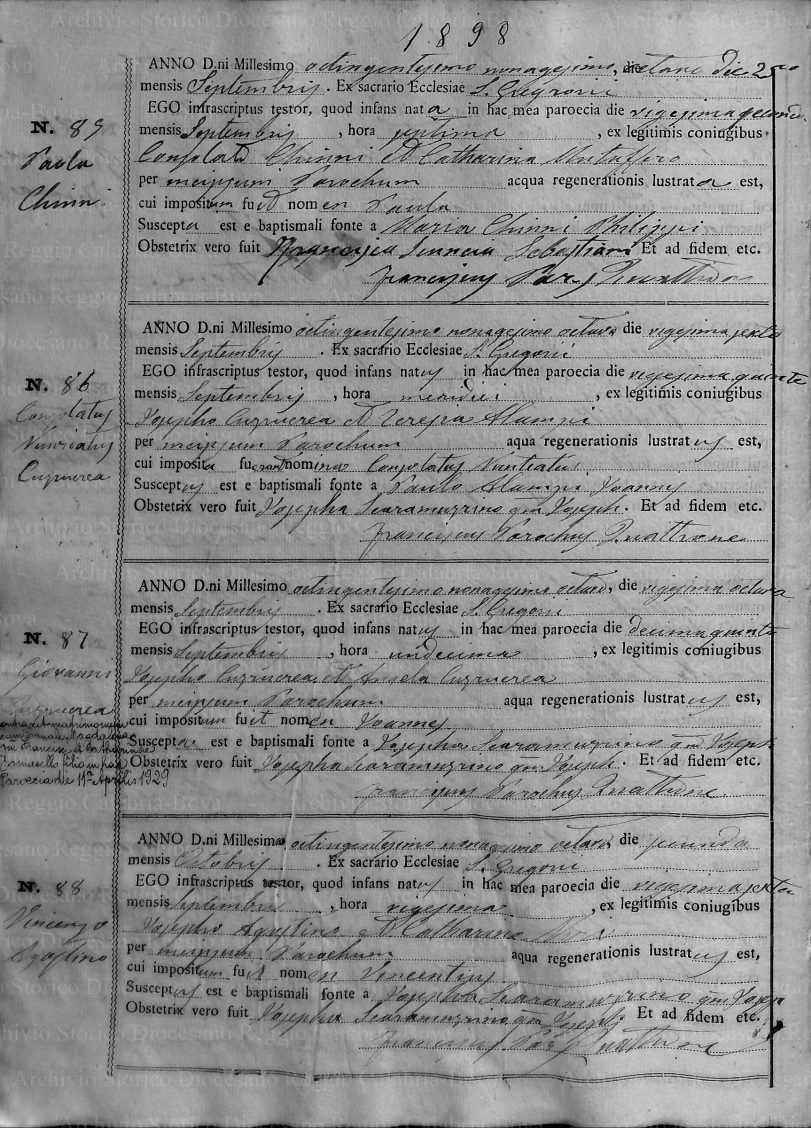 1898
ANNO D.ni Millesimo octingentesimo nonagesimo, octavo die 25
mensis Septembris. Ex sacrario Ecclesiae S. Gregorii
EGO infrascriptus testor, quod infans nata in hac mea paroecia die vigesimaquinta
N. 85
mensis Septembris, hora septima, ex legitimis coniugibus
Paola
Consolato Chinni et Catharina
Chinni
per meipsum Parochum acqua regenerationis lustrata est,
cui impositum fuit nomen Paula
Suscepta est e baptismali fonte a Maria Chinni Philippi
Obstetrix vero fuit Francisca Sebastiani Et ad fidem etc.
Franciscus Par. Quattrone
ANNO D.ni Millesimo octingentesimo nonagesimo octavo die vigesima sexta
mensis Septembris. Ex sacrario Ecclesiae S. Gregorii
EGO infrascriptus testor, quod infans natus in hac mea paroecia die vigesima quinta
N. 86
mensis Septembris, hora meridiei, ex legitimis coniugibus
Consolatus
Josepho Cuzzucrea et Teresia Alampi
Nunciatus
per meipsum Parochum aqua regenerationis lustratus est,
Cuzzucrea
cui imposita fuerunt nomina Consolatus Nuntiatus
Susceptus est e baptismali fonte a Paulo Alampi Joannis
Obstetrix vero fuit Josepha Scaramuzzino qm Joseph. Et ad fidem etc.
Franciscus Parochus Quattrone
ANNO D.ni Millesimo octingentesimo nonagesimo octavo, die vigesima octava
mensis Septembris. Ex sacrario Ecclesiae S. Gregorii
EGO infrascriptus testor, quod infans natus in hac mea paroecia die decimaquinta
N. 87
mensis Septembris, hora undecima, ex legitimis coniugibus
Giovanni
Josepho Cuzzucrea et Angela Cuzzucrea
Cuzzucrea
per meipsum Parochum aqua regenerationis lustratus est,
contraxit matrimonium
cui impositum fuit nomen Joannes
cum Magdalena
Susceptus est e baptismali fonte a Josepha Scaramuzzino qm Joseph
Francisci et Catharinae
Obstetrix vero fuit Josepha Scaramuzzino qm Joseph. Et ad fidem etc.
in hac
Paroecia die 11a Aprilis 1929
Franciscus Parochus Quattrone
ANNO D.ni Millesimo octingentesimo nonagesimo octavo die secunda
mensis Octobris. Ex sacrario Ecclesiae S. Gregorii
EGO infrascriptus testor, quod infans natus in hac mea paroecia die vigesima sexta
N. 88
mensis Septembris, hora vigesima, ex legitimis coniugibus
Vincenzo
Josepho Agostino et Catharina
Agostino
per meipsum Parochum aqua regenerationis lustratus est,
cui impositum fuit nomen Vincentius
Susceptus est e baptismali fonte a Josepha Scaramuzzino qm Joseph
Obstetrix vero fuit Josepha Scaramuzzino qm Joseph Et ad fidem etc.
Franciscus Par. Quattrone
Archivio Storico Diocesano Reggio Calabria